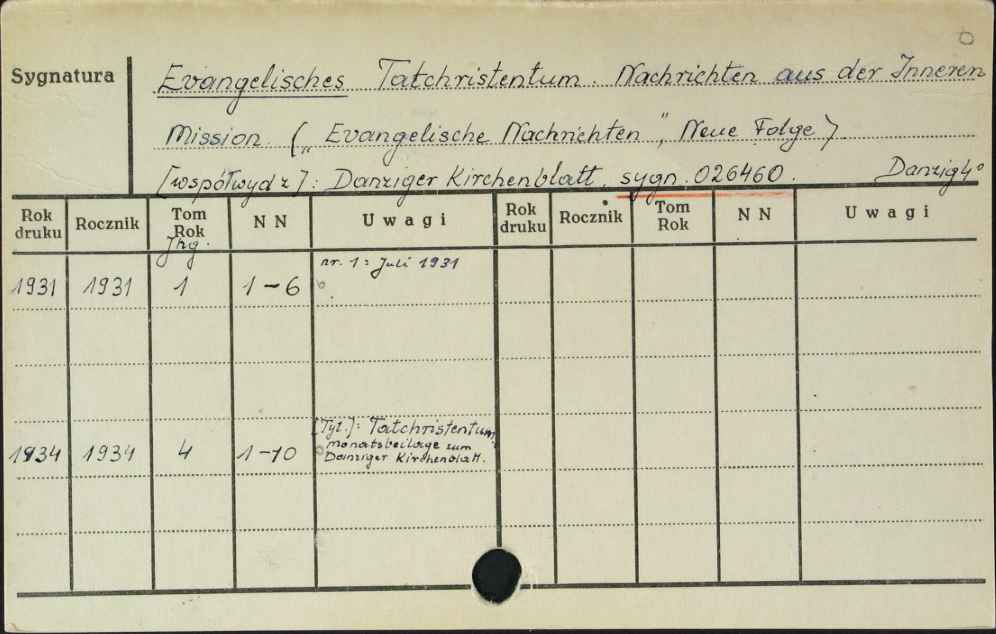 Sygnatura
Evangelisches Tatchristentum. Nachrichten aus der Inneren
Mission. („Evangelische Nachrichten", Neue Folge)
[współwyd z]: Danziger Kirchenblatt. sygn. 026460. Danzig 4°
Rok druku Rocznik Tom Rok NN Uwagi Rok druku Rocznik Tom Rok NN Uwagi
Jhg.
nr. 1: Juli 1931
1931 1931 1 1-6
[Tyt.]: Tatchristentum
monatsbeilage zum
1934 1934 4 1-10 Danziger Kirchenblatt.